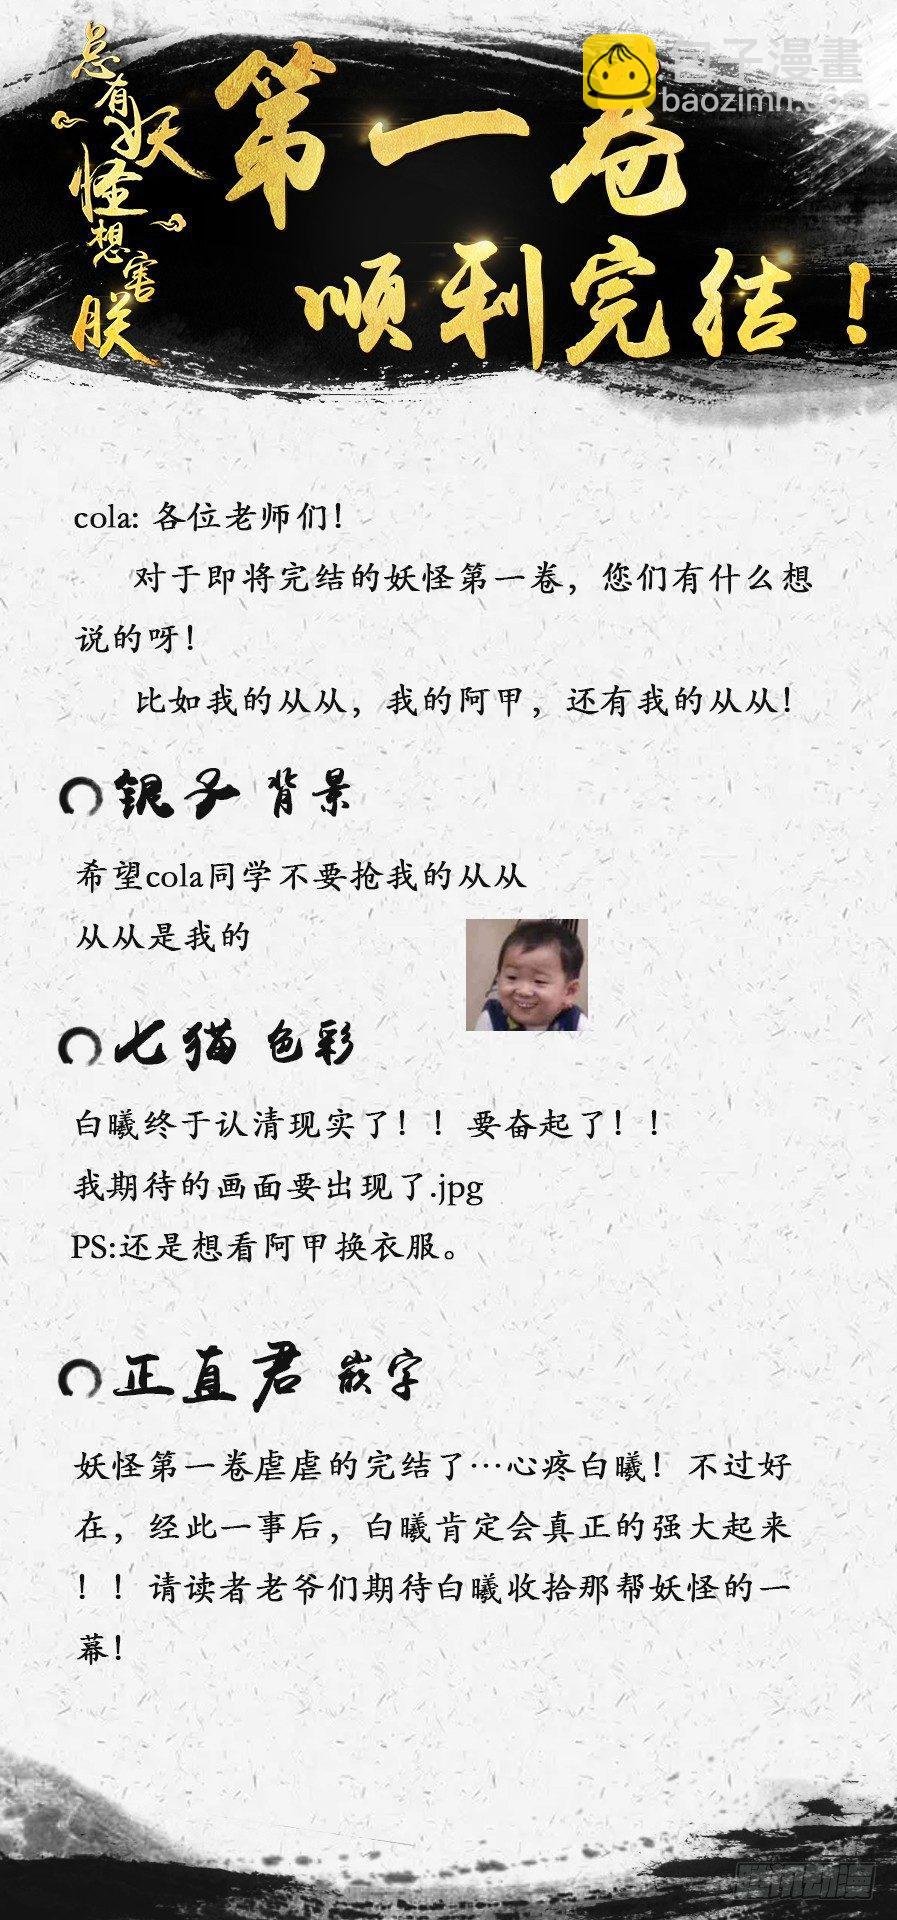 总有妖怪想害朕
第一卷
顺利完结！
包子漫畫
baozimh.com
cola: 各位老师们！
对于即将完结的妖怪第一卷，您们有什么想
说的呀！
比如我的从从，我的阿甲，还有我的从从！
银子 背景
希望cola同学不要抢我的从从
从从是我的
七猫 色彩
白曦终于认清现实了！！要奋起了！！
我期待的画面要出现了.jpg
PS:还是想看阿甲换衣服。
正直君 嵌字
妖怪第一卷虐虐的完结了…心疼白曦！不过好
在，经此一事后，白曦肯定会真正的强大起来
！！请读者老爷们期待白曦收拾那帮妖怪的一
幕！
腾讯动漫